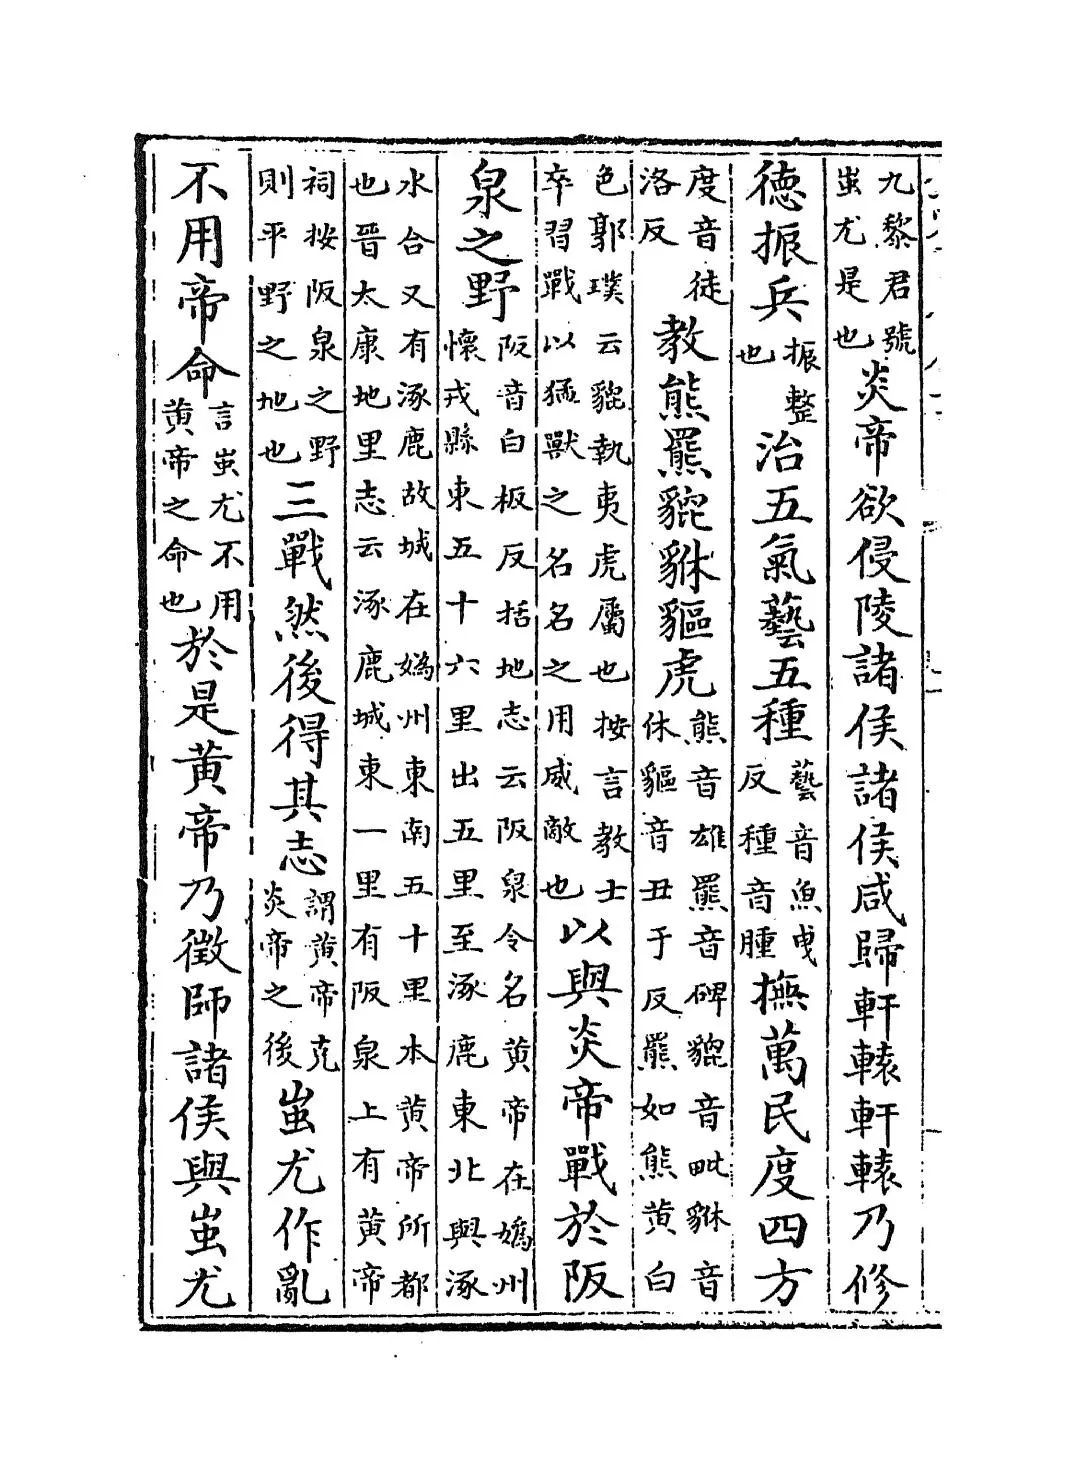 九黎君號
蚩尤是也
炎帝欲侵陵諸侯諸侯咸歸軒轅軒轅乃修
德振兵
振整
也
治五氣藝五種
藝音魚曳
反種音腫
撫萬民度四方
度音徒
洛反
教熊羆貔貅貙虎
熊音雄羆音碑貔音毗貅音
休貙音丑于反羆如熊黄白
色郭璞云貔執夷虎屬也按言教士
卒習戰以猛獸之名名之用威敵也
以與炎帝戰於阪
泉之野
阪音白板反括地志云阪泉今名黄帝在媯州
懷戎縣東五十六里出五里至涿鹿東北與涿
水合又有涿鹿故城在媯州東南五十里本黄帝所都
也晉太康地里志云涿鹿城東一里有阪泉上有黄帝
祠按阪泉之野
則平野之地也
三戰然後得其志
謂黄帝克
炎帝之後
蚩尤作亂
不用帝命
言蚩尤不用
黄帝之命也
於是黄帝乃徴師諸侯與蚩尤